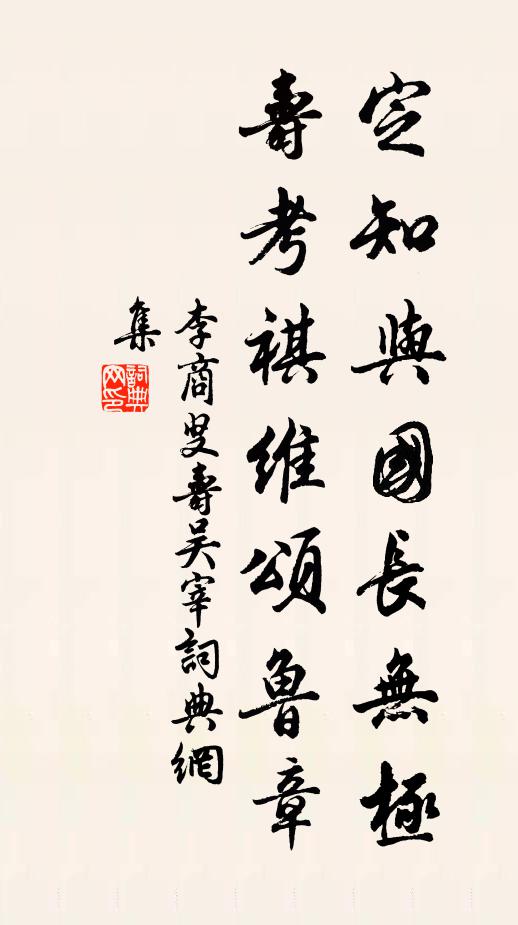 定知與國長無極
壽考祺維頌魯章
李商叟壽吳宰詞典網
集
詞典
网印